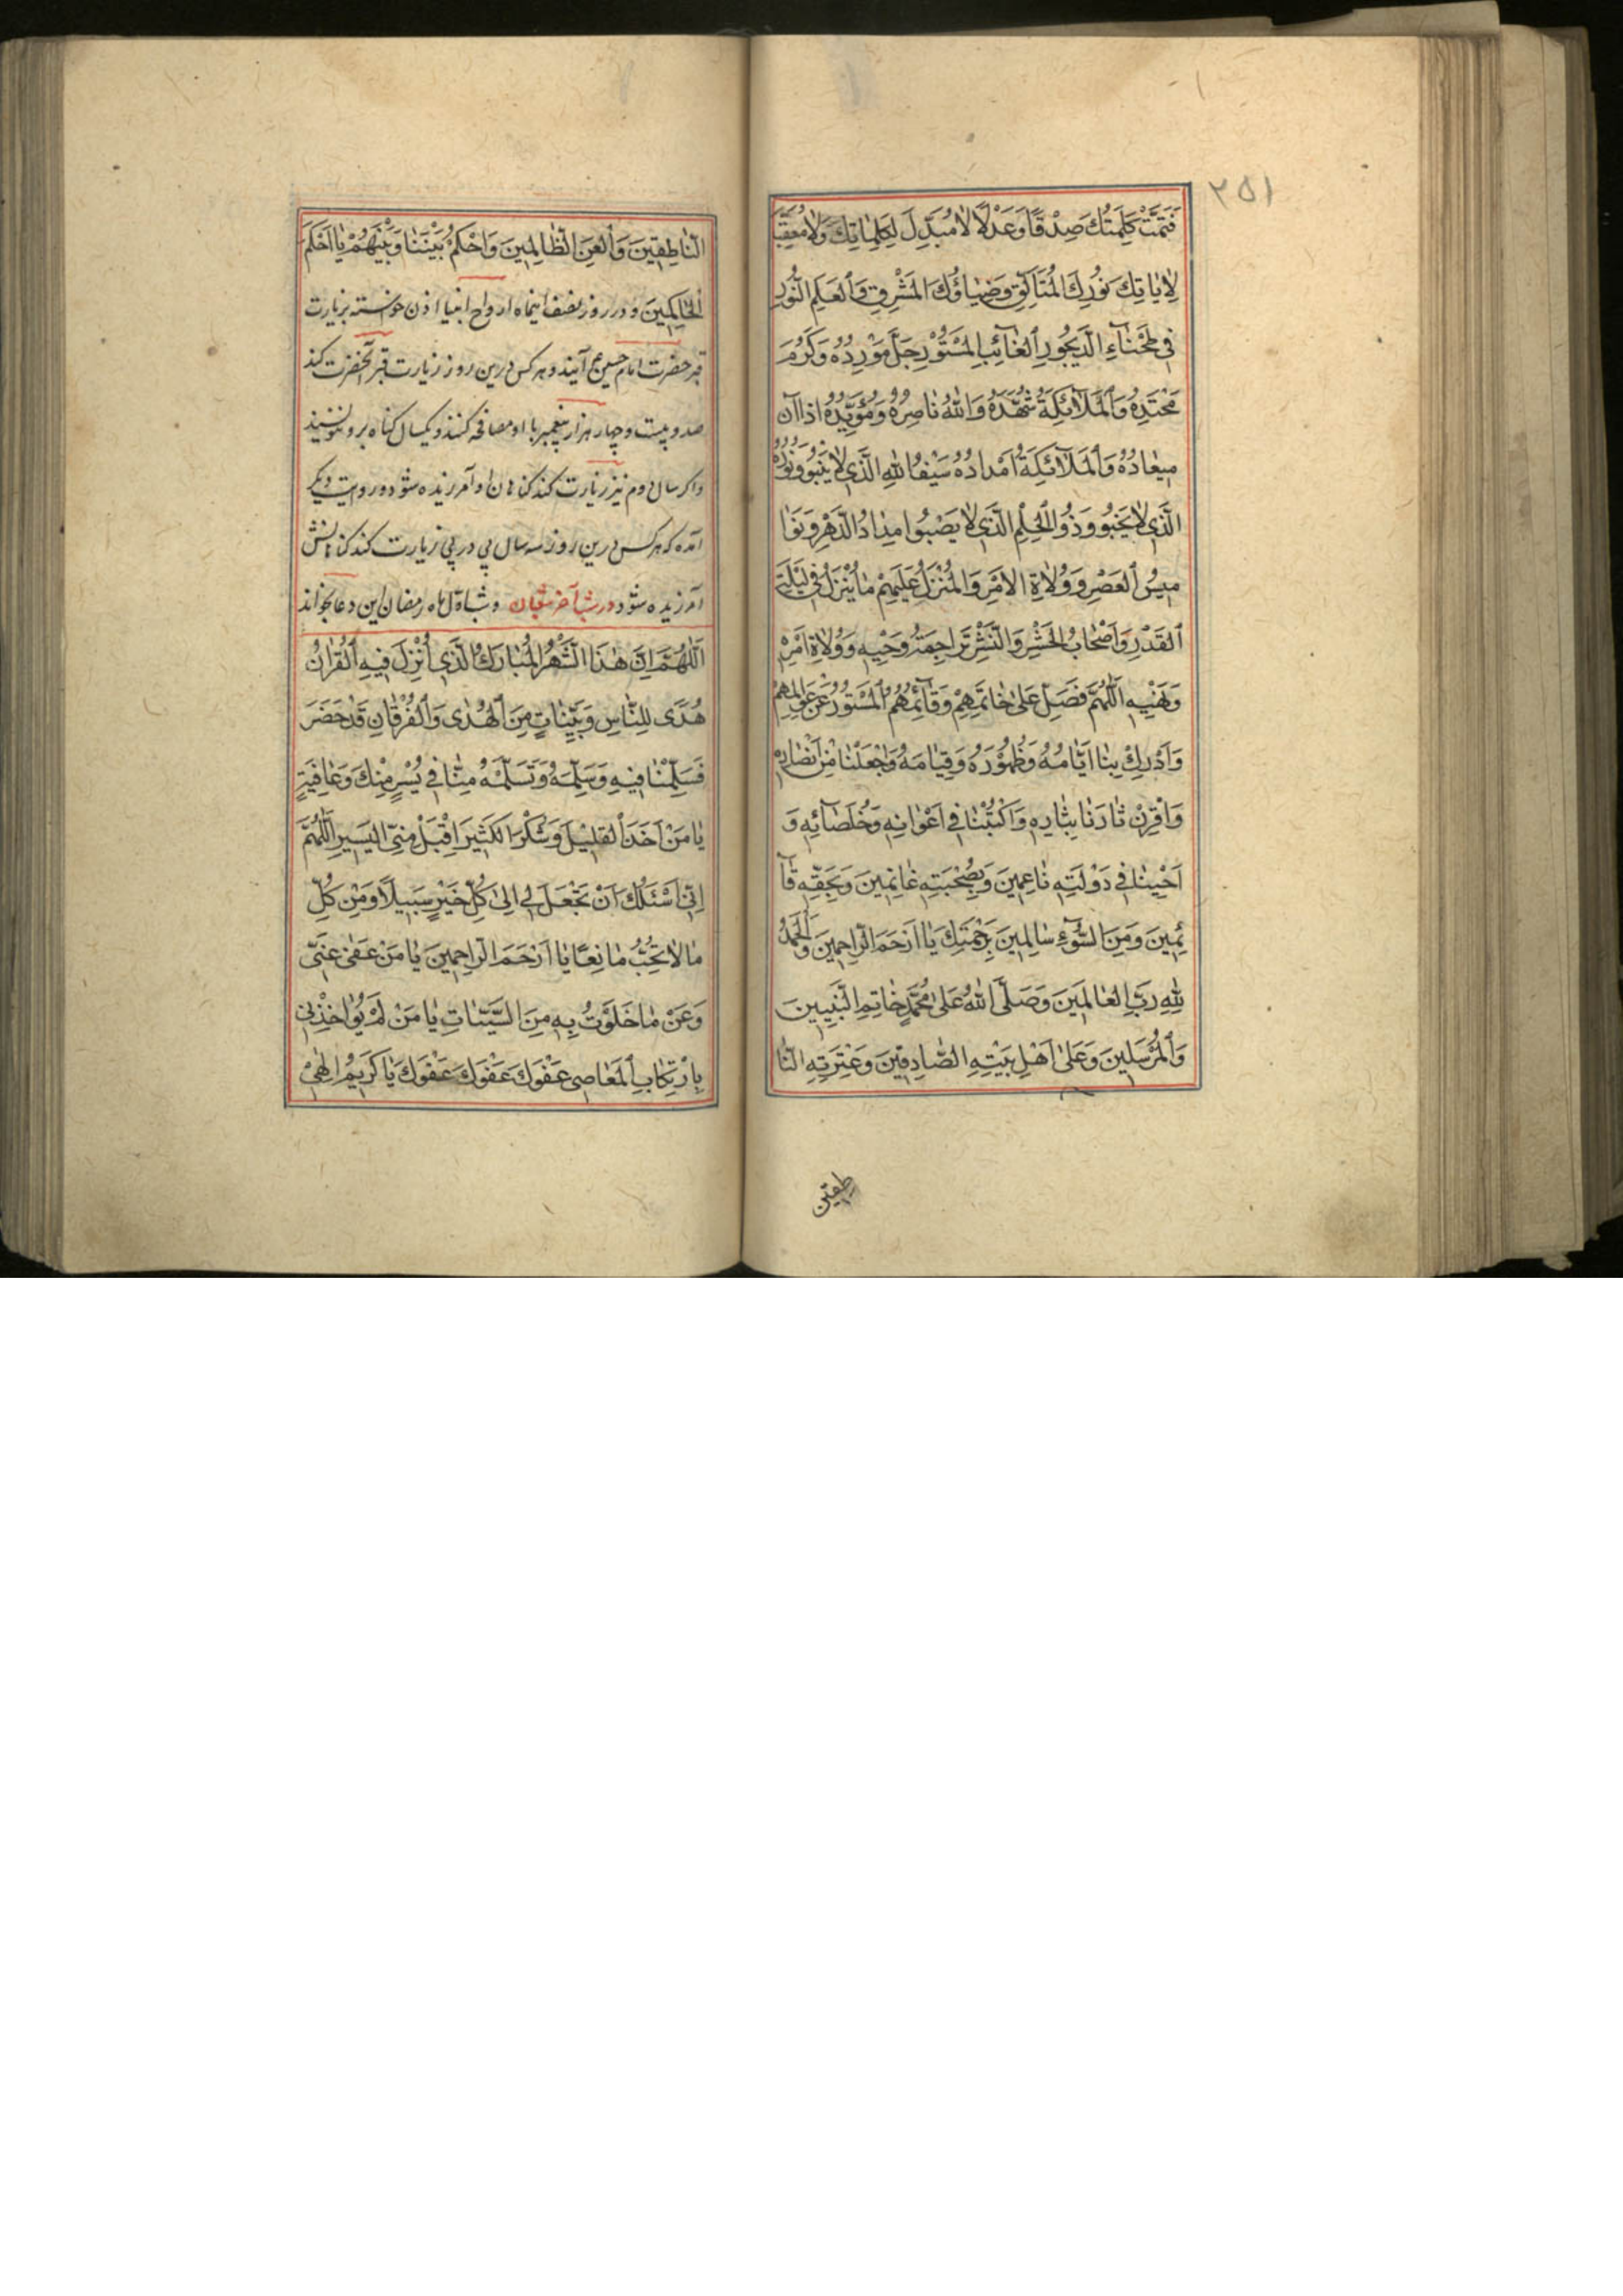 ۲۵۱
فَتَمَّتْ كَلِمَتُكَ صِدْقًا وَعَدْلًا لَا مُبَدِّلَ لِكَلِمَاتِكَ وَلَا مُعَقِّبَ
لِاٰيَاتِكَ نُورُكَ الْمُتَأَلِّقُ وَضِيَاؤُكَ الْمُشْرِقُ وَالْعَلَمُ النُّورُ
فِي طَخْنَاءِ الدَّيْجُورِ الْغَائِبِ الْمَسْتُورِ جَلَّ مَوْرِدُهُ وَكَرُمَ
مَحْتِدُهُ وَالْمَلَائِكَةُ شُهَّدُهُ وَاللّٰهُ نَاصِرُهُ وَمُؤَيِّدُهُ اِذَا اٰنَ
مِيعَادُهُ وَالْمَلَائِكَةُ اَمْدَادُهُ سَيْفُ اللّٰهِ الَّذِي لَا يَنْبُو وَنُورُهُ
الَّذِي لَا يَخْبُو وَذُو الْحِلْمِ الَّذِي لَا يَصْبُوا مِدَادُ الدَّهْرِ وَنَوَا
مِيسُ الْعَصْرِ وَوُلَاةُ الْاَمْرِ وَالْمُنْزَلُ عَلَيْهِمْ مَا يُنْزَلُ فِي لَيْلَةِ
الْقَدْرِ وَاَصْحَابُ الْحَشْرِ وَالنَّشْرِ تَرَاجِمَةُ وَحْيِهِ وَوُلَاةُ اَمْرِهِ
وَنَهْيِهِ اَللّٰهُمَّ فَصَلِّ عَلٰى خَاتَمِهِمْ وَقَائِمِهُمُ الْمَسْتُورُ عَنْ عَوَالِمِهِمْ
وَاَدْرِكْ بِنَا اَيَّامَهُ وَظُهُورَهُ وَقِيَامَهُ وَاجْعَلْنَا مِنْ اَنْصَارِهِ
وَاقْرِنْ ثَارَنَا بِثَارِهِ وَاكْتُبْنَا فِي اَعْوَانِهِ وَخُلَصَائِهِ وَ
اَحْيِنَا فِي دَوْلَتِهِ نَاعِمِينَ وَبِصُحْبَتِهِ غَانِمِينَ وَبِحَقِّهِ قَا
ئِمِينَ وَمِنَ السُّوءِ سَالِمِينَ بِرَحْمَتِكَ يَا اَرْحَمَ الرَّاحِمِينَ وَالْحَمْدُ
لِلّٰهِ رَبِّ الْعَالَمِينَ وَصَلَّى اللّٰهُ عَلٰى مُحَمَّدٍ خَاتِمِ النَّبِيِّينَ
وَالْمُرْسَلِينَ وَعَلٰى اَهْلِ بَيْتِهِ الصَّادِقِينَ وَعِتْرَتِهِ النَّا
طقين
النَّاطِقِينَ وَالْعَنِ الظَّالِمِينَ وَاحْكُمْ بَيْنَنَا وَبَيْنَهُمْ يَا اَحْكَمَ
الْحَاكِمِينَ و در روز نصف اينماه ارواح انبيا اذن خواسته بزيارت
قبر حضرت امام حسين ع آيند و هر كس درين روز زيارت قبر آنحضرت كند
صد و بيست و چهار هزار پيغمبر با او مصافحه كنند و يكسال كناه برو ننويسند
و اكر سال دوم نيز زيارت كند كناهان او آمرزيده شود و در روايت ديكر
آمده كه هر كس درين روز سه سال پى در پى زيارت كند كناهانش
آمرزيده شود و در شب آخر شعبان و شب اول ماه رمضان اين دعا بخواند
اَللّٰهُمَّ اِنَّ هٰذَا الشَّهْرُ الْمُبَارَكُ الَّذِي اُنْزِلَ فِيهِ الْقُرْاٰنُ
هُدًى لِلنَّاسِ وَبَيِّنَاتٍ مِنَ الْهُدٰى وَالْفُرْقَانِ قَدْ حَضَرَ
فَسَلِّمْنَا فِيهِ وَسَلِّمْهُ وَتَسَلَّمْهُ مِنَّا فِي يُسْرٍ مِنْكَ وَعَافِيَةٍ
يَا مَنْ اَخَذَ الْقَلِيلَ وَشَكَرَ الْكَثِيرَ اِقْبَلْ مِنِّي الْيَسِيرَ اَللّٰهُمَّ
اِنِّي اَسْئَلُكَ اَنْ تَجْعَلَ لِي اِلٰى كُلِّ خَيْرٍ سَبِيلًا وَمِنْ كُلِّ
مَا لَا تُحِبُّ مَانِعًا يَا اَرْحَمَ الرَّاحِمِينَ يَا مَنْ عَفٰى عَنِّي
وَعَنْ مَا خَلَوْتُ بِهِ مِنَ السَّيِّئَاتِ يَا مَنْ لَمْ يُؤَاخِذْنِي
بِارْتِكَابِ الْمَعَاصِي عَفْوَكَ عَفْوَكَ عَفْوَكَ يَا كَرِيمُ اِلٰهِي